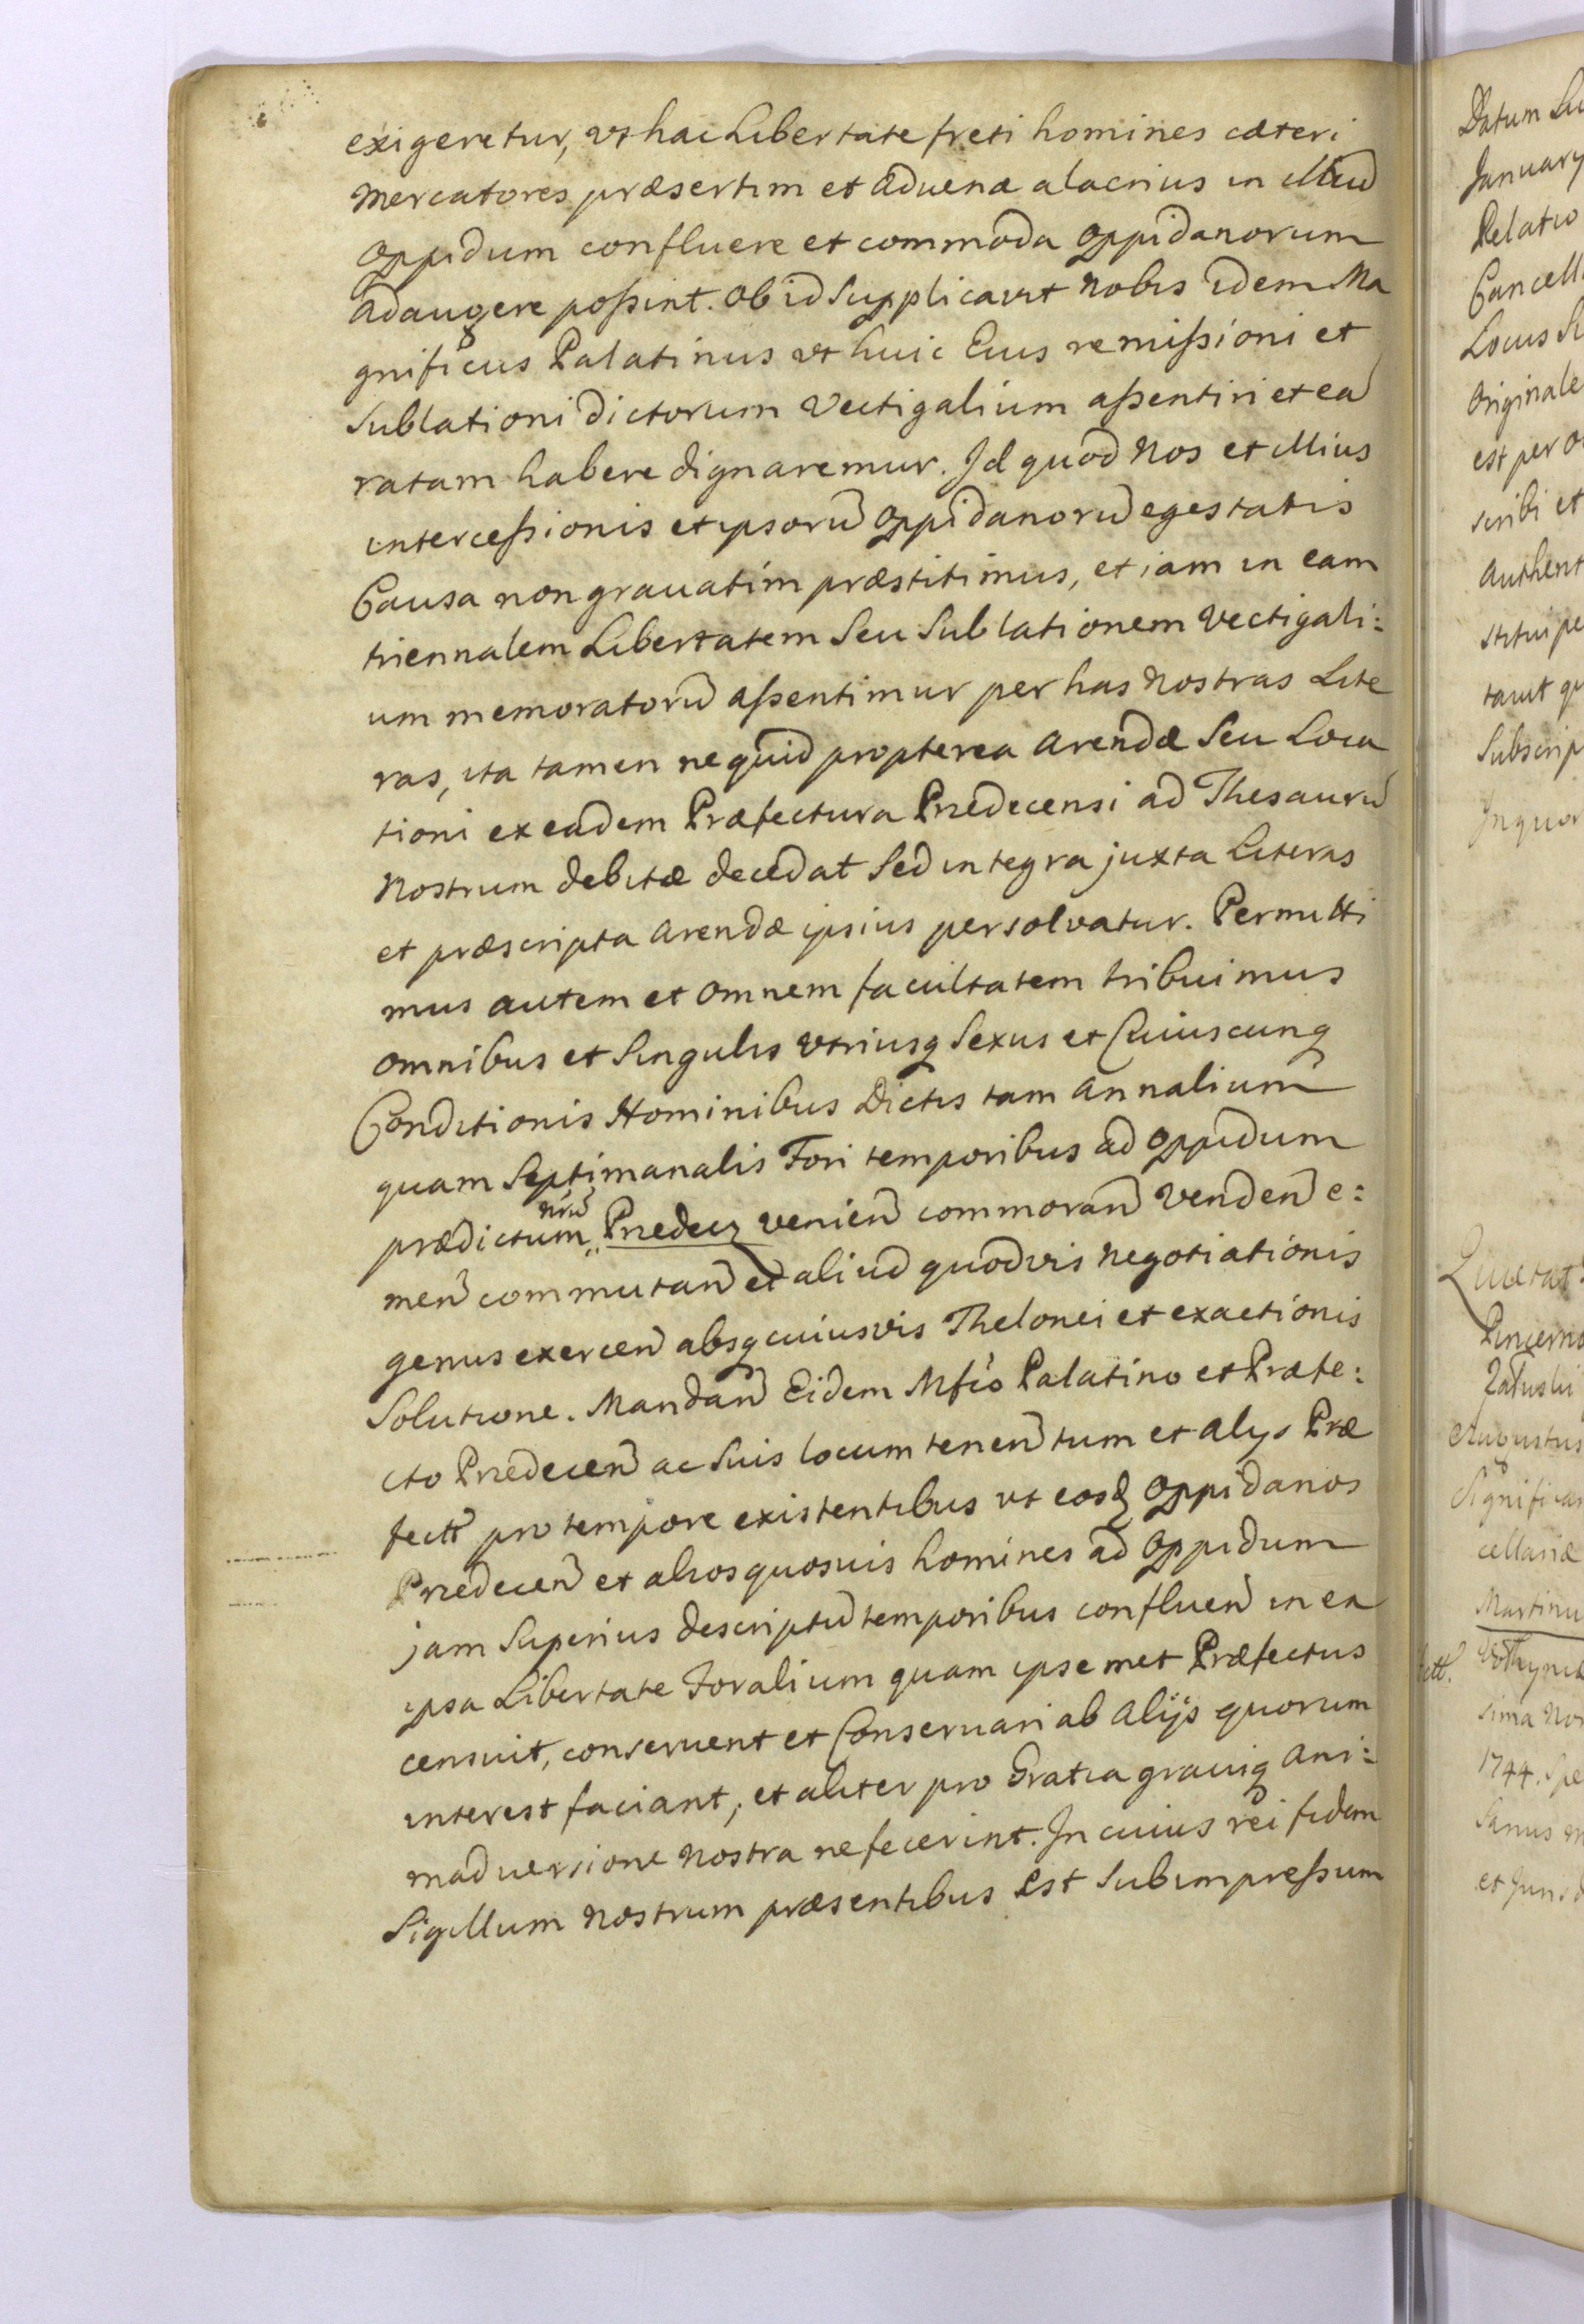 exigeretur, vt hac Libertate freti homines cæteri
Mercatores præsertim et Aduenæ alacrius in illud
Oppidum confluere et commoda Oppidanorum
Adaugere poßint. Ob id Supplicavit Nobis idem Ma
gnificus Palatinus vt huic Eius remißioni et
Sublationi dictorum Vectigalium aßentiri et ea
ratam habere dignaremur. Id quod Nos et illius
interceßionis et ipsorũ Oppidanorũ egestatis
Causa non grauatim præstitimus, et iam in eam
triennalem Libertatem Seu Sublationem Vectigali:
um memoratorũ aßentimur per has Nostras Lite
ras, ita tamen ne quid propterea Arendæ Seu Loca
tioni ex eadem Præfectura Przedecensi ad Thesaurũ
Nostrum debitæ decedat Sed integra juxta Literas
et præscripta Arendæ ipsius persolvatur. Permitti
mus autem et omnem facultatem tribuimus
omnibus et Singulis vtriusq Sexus et Cuiuscunq
Conditionis Hominibus Dictis tam Annalium
quam Septimanalis Fori temporibus ad Oppidum
nrũ
prædictum Przedecz venien̄ commoran̄ Venden̄ e:
men̄ commutan̄ et aliud quodvis Negotiationis
genus exercen̄ absq cuiusvis Thelonei et exactionis
Solutione. Mandan̄ Eidem Mfco Palatino et Præfe:
cto Przedecen̄ ac Suis locum tenen̄ tum et Alys Præ
fectt pro tempore existentibus vt eosd Oppidanos
Przedecen̄ et alios quosuis homines ad Oppidum
jam Superius descriptũ temporibus confluen̄ in ea
ipsa Libertate Foralium quam ipsemet Præfectus
censuit, conseruent et Conseruari ab Alijs quorum
interest faciant, et aliter pro Gratia grauiq Ani:
maduersione Nostra ne fecerint. In cuius rei fidem
Sigillum Nostrum præsentibus est Subimpreßum
Datum
January
Relatio
Cancell
Locus
Originale
est per
scribi et
Authent
Subscrip
In quor
Augustus
Significa
cellariæ
Martinu
1744.